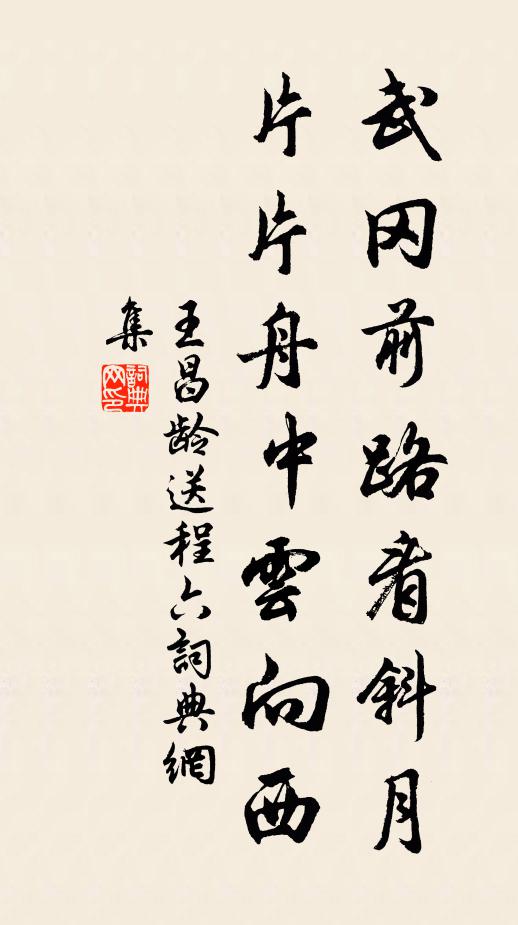 武冈前路看斜月
片片舟中雲向西
王昌龄送程六詞典網
集
詞典网印